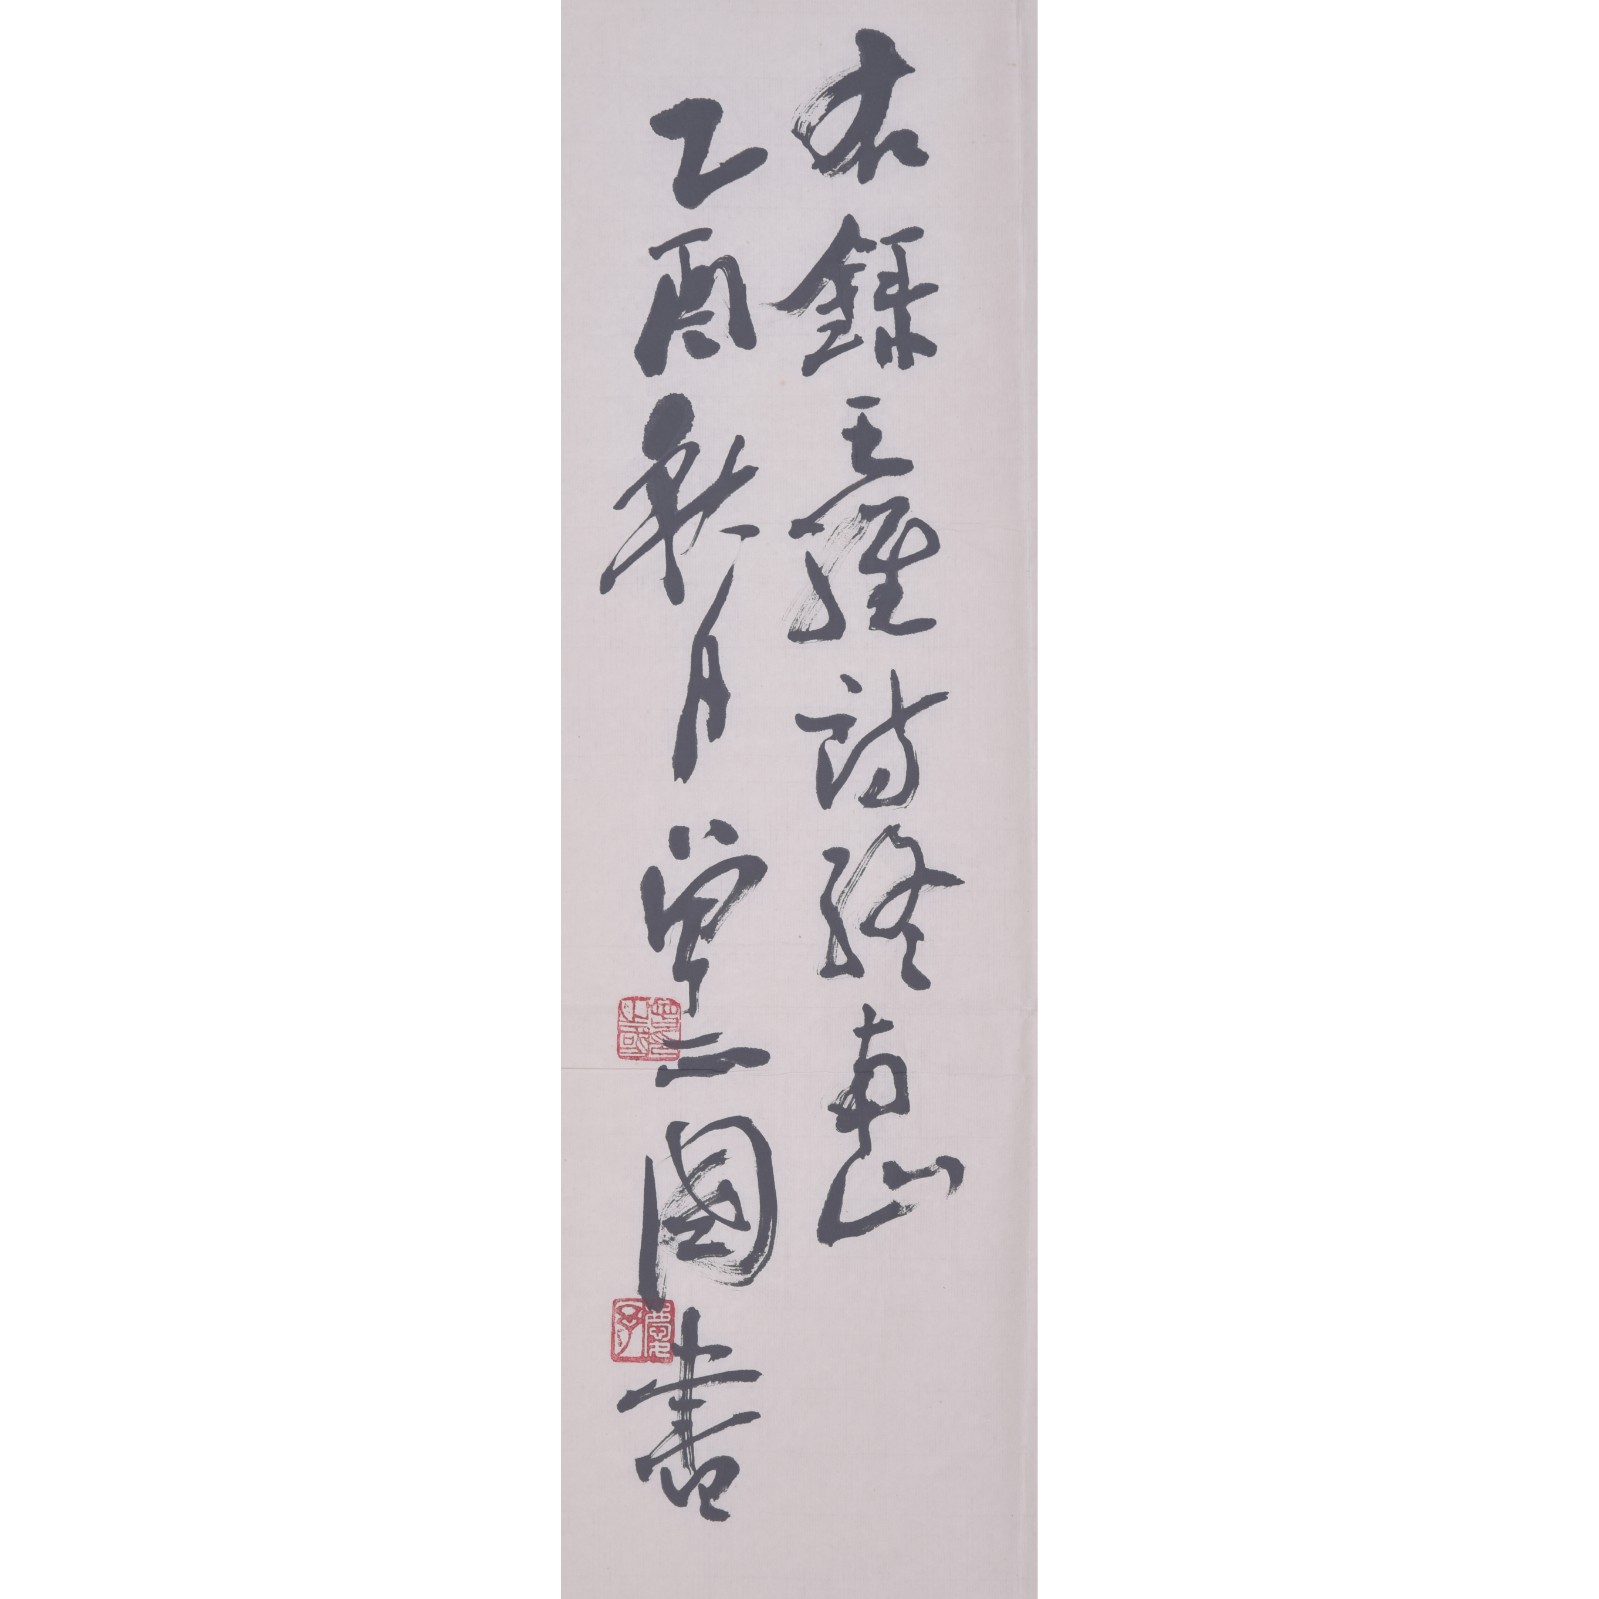 右錄王維詩終南山
乙酉秋月曾國書